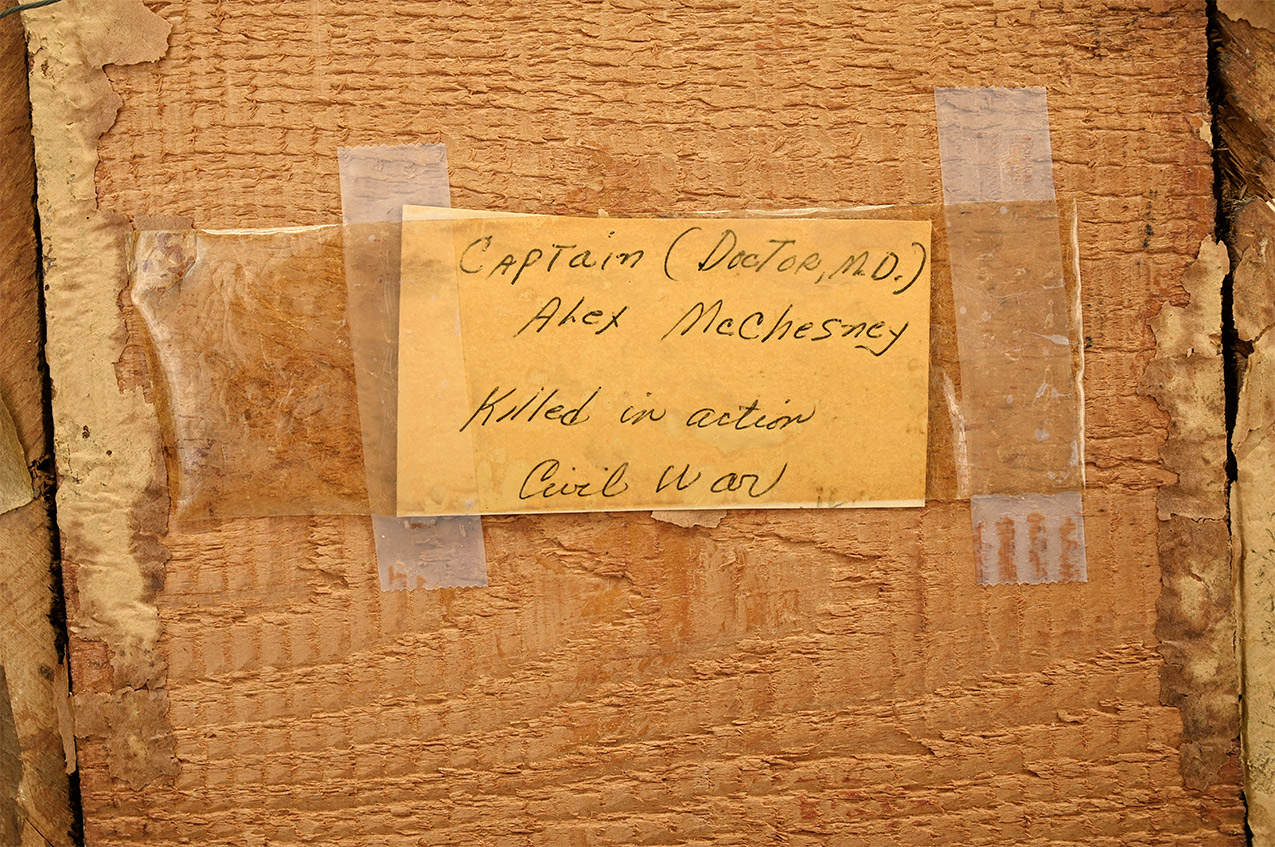 Captain (Doctor, M.D.)
Alex McChesney
Killed in action
Civil War